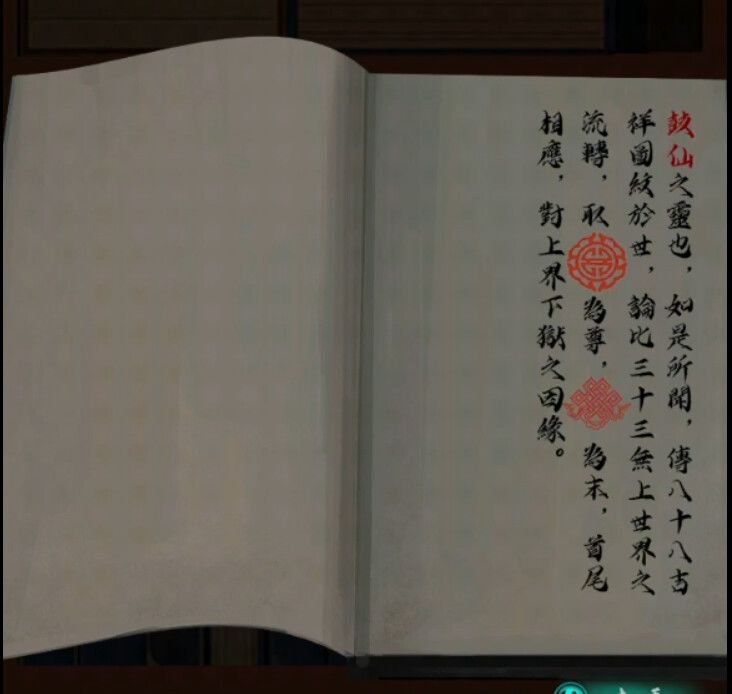 鼓仙之靈也，如是所聞，傳八十八吉
祥圖紋於世，論比三十三無上世界之
流轉，取為尊，為末，首尾
相應，對上界下獄之因緣。